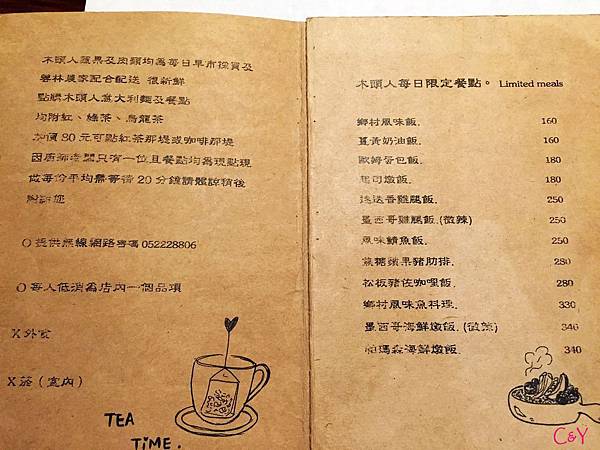 木頭人蔬果及肉類均為每日早市採買及
雲林農家配合配送 很新鮮
點購木頭人意大利麵及餐點
均附紅、綠茶、烏龍茶
加價30元可點紅茶那堤或咖啡那堤
因店部老闆只有一位且餐點均為現點現
做每份平均需等待20分鐘請體諒稍後
謝謝您
O 提供無線網路密碼 052228806
O 每人低消為店內一個品項
X 外食
X 菸（室內）
TEA
TIME.
木頭人每日限定餐點。 Limited meals
鄉村風味飯. 160
薑黃奶油飯. 160
歐姆蛋包飯. 180
起司燉飯. 180
迷迭香雞腿飯. 250
墨西哥雞腿飯.(微辣) 250
風味鯖魚飯. 250
焦糖蘋果豬肋排. 280
松板豬佐咖哩飯. 280
鄉村風味魚料理. 330
墨西哥海鮮燉飯.(微辣) 340
帕瑪森海鮮燉飯. 340
C&Y